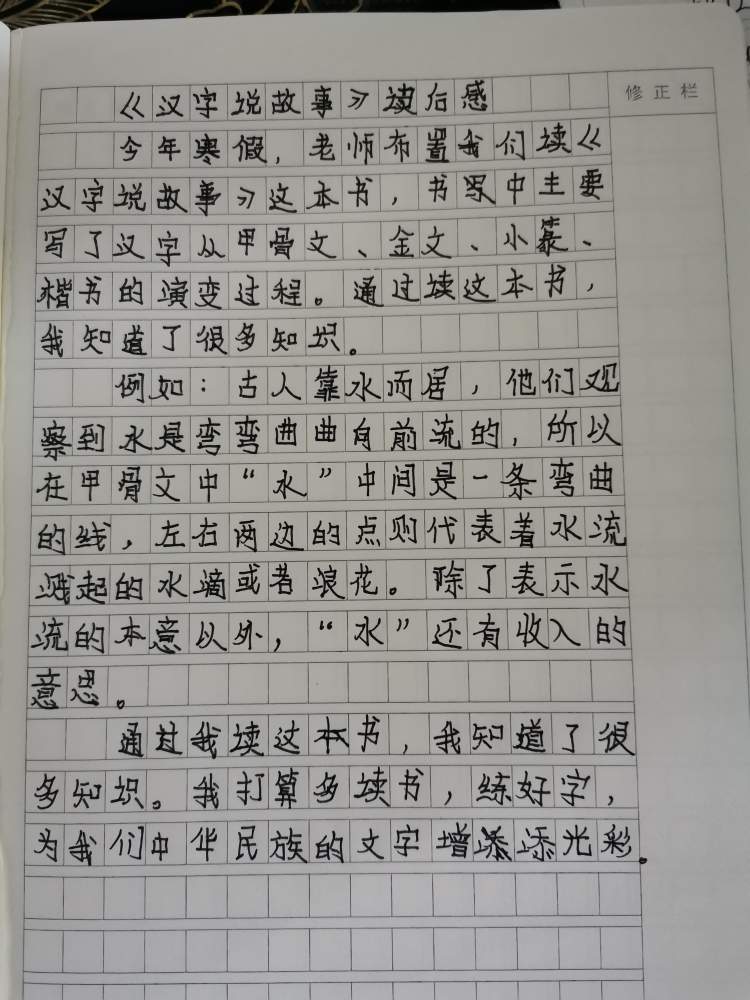 《汉字说故事》读后感
修正栏
今年寒假，老师布置我们读《
汉字说故事》这本书，书写中主要
写了汉字从甲骨文、金文、小篆、
楷书的演变过程。通过读这本书，
我知道了很多知识。
例如：古人靠水而居，他们观
察到水是弯弯曲曲向前流的，所以
在甲骨文中“水”中间是一条弯曲
的线，左右两边的点则代表着水流
溅起的水滴或者浪花。除了表示水
流的本意以外，“水”还有收入的
意思。
通过我读这本书，我知道了很
多知识。我打算多读书，练好字，
为我们中华民族的文字增添添光彩。